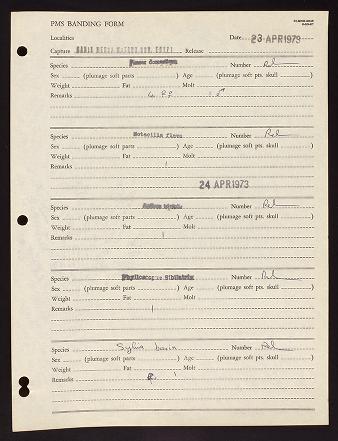 PMS BANDING FORM
Localities Date 23 APR 1973
Capture Release
Species Number Rel
Sex (plumage soft parts ) Age (plumage soft pts. skull )
Weight Fat Molt
Remarks 4 ♀♀ ♂
Species Motacilla flava Number Rel
Sex (plumage soft parts ) Age (plumage soft pts. skull )
Weight Fat Molt
Remarks 1
24 APR 1973
Species Number Rel
Sex (plumage soft parts ) Age (plumage soft pts. skull )
Weight Fat Molt
Remarks 1
Species Phylloscopus Sibilatrix Number Rel
Sex (plumage soft parts ) Age (plumage soft pts. skull )
Weight Fat Molt
Remarks 1
Species Sylvia borin Number Rel
Sex (plumage soft parts ) Age (plumage soft pts. skull )
Weight Fat Molt
Remarks 1